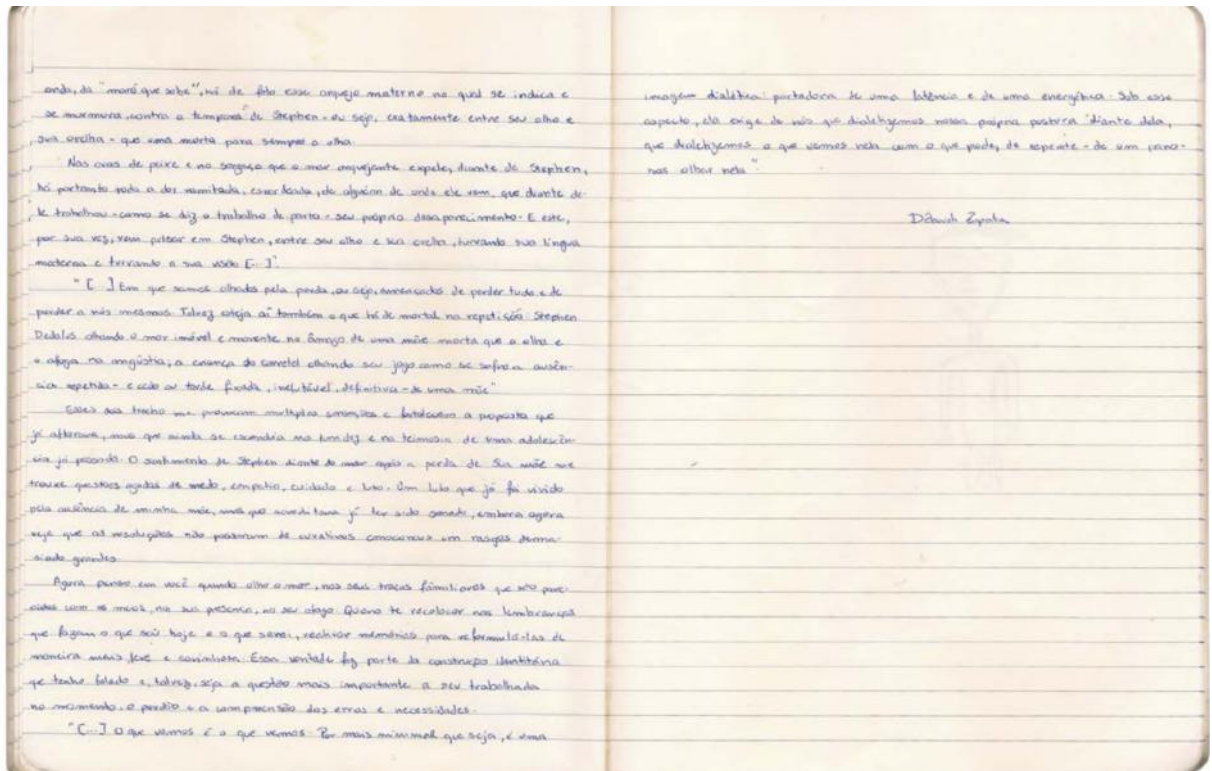 onda, da "maré que sobe", há de fato esse arquejo materno no qual se indica e
se murmura, contra a têmpora de Stephen - ou seja, exatamente entre seu olho e
sua orelha - que uma morta para sempre o olha.
Nas ovas de peixe e no sargaço que o mar arquejante expele, diante de Stephen,
há portanto toda a dor vomitada, esverdeada, de alguém de onde ele vem, que diante de-
le trabalhou - como se diz o trabalho de parto - seu próprio desaparecimento. E este,
por sua vez, vem pulsar em Stephen, entre seu olho e sua orelha, turvando sua língua
materna e turvando a sua visão [...]".
"[...] Em que somos olhados pela perda, ou seja, ameaçados de perder tudo e de
perder a nós mesmos. Talvez esteja aí também o que há de mortal na repetição: Stephen
Dedalus olhando o mar imóvel e movente no âmago de uma mãe morta que o olha e
o afoga na angústia; a criança do carretel olhando seu jogo como se sofre a ausên-
cia repetida - e cedo ou tarde fixada, inelutável, definitiva - de uma mãe"
Esses dois trechos me provocam múltiplas emoções e fortalecem a proposta que
já aflorava, mas que ainda se escondia na timidez e na teimosia de uma adolescên-
cia já passada. O sentimento de Stephen diante do mar após a perda de sua mãe me
trouxe questões agudas de medo, empatia, cuidado e luto. Um luto que já foi vivido
pela ausência de minha mãe, mas que acreditava já ter sido sanado, embora agora
veja que as resoluções não passaram de curativos em rasgos dema-
siado grandes.
Agora penso em você quando olho o mar, nos seus traços familiares que são pare-
cidos com os meus, na sua presença, no seu afago. Quero te recolocar nas lembranças
que fazem o que sou hoje e o que serei, reativar memórias para reformulá-las de
maneira mais leve e carinhosa. Essa vontade faz parte da construção identitária
que tenho falado e, talvez, seja a questão mais importante a ser trabalhada
no momento: o perdão e a compreensão dos erros e necessidades.
"[...] O que vemos é o que vemos. Por mais minimal que seja, é uma
imagem dialética: portadora de uma latência e de uma energética. Sob esse
aspecto, ela exige de nós que dialetizemos nossa própria postura diante dela,
que dialetizemos o que vemos nela com o que pode, de repente - de um pano -
nos olhar nela".